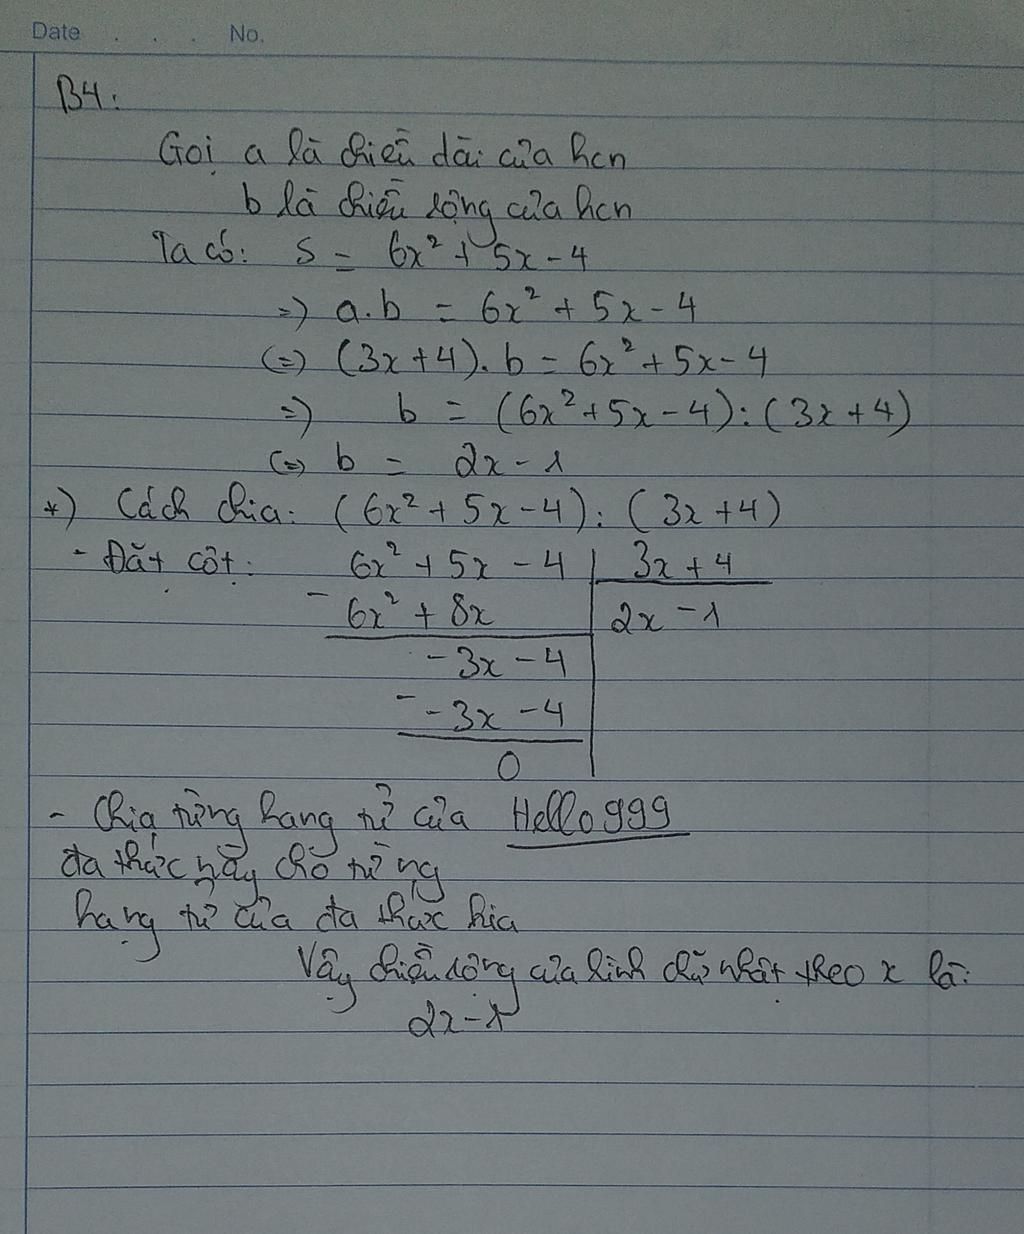 Date . . . No.
B4:
Gọi a là chiều dài của hcn
b là chiều rộng của hcn
Ta có: S = 6x² + 5x - 4
=> a.b = 6x² + 5x - 4
<=> (3x + 4). b = 6x² + 5x - 4
=> b = (6x² + 5x - 4) : (3x + 4)
<=> b = 2x - 1
*) Cách chia: (6x² + 5x - 4) : (3x + 4)
- Đặt cột: 6x² + 5x - 4 | 3x + 4
- 6x² + 8x 2x - 1
-3x - 4
- -3x - 4
0
- Chia từng hạng tử của Hello999
đa thức này cho từng
hạng tử của đa thức kia
Vậy chiều rộng của hình chữ nhật theo x là:
2x - 1